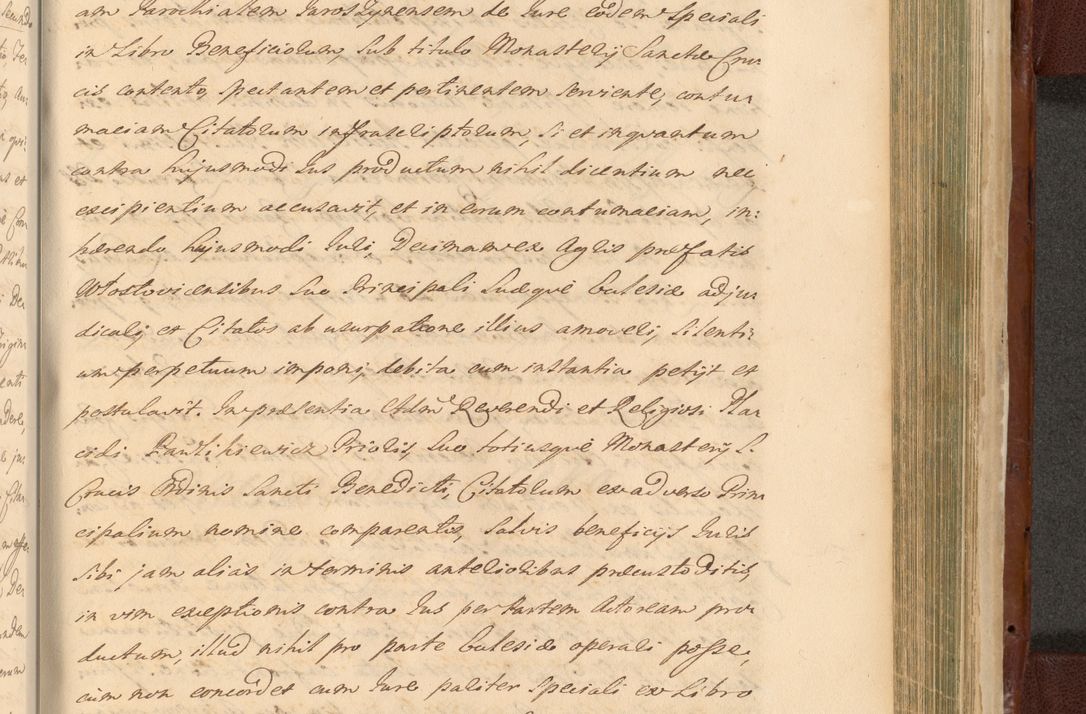 am Parochialem Jaroszynensem de Jure eodem Speciali
in Libro Beneficiorum, Sub titulo Monasterij Sanctæ Cru-
cis contento, spectantem et pertinentem serviente, contu-
maciam Citatorum infrascriptorum, si et inquantum
contra hujusmodi Jus productum nihil dicentium nec
excipientium accusavit, et in eorum contumaciam, in:
hærendo hujusmodi Juri, Decimam ex Agris præfatis
Wlostovicensibus Suo Principali Suæque Ecclesiæ adju-
dicari, et Citatos ab usurpatione illius amoveri, Silenti-
um perpetuum imponi, debita cum instantia petijt et
postulavit. In præsentia Adm. Reverendi et Religiosi Pla-
cidi Pantikiewicz Prioris, Suo totiusque Monasterij S.
Crucis Ordinis Sancti Benedicti, Citatorum ex adverso Prin-
cipalium nomine comparentis, Salvis beneficijs Juris
Sibi jam alias in terminis anterioribus præcustoditis,
in vim exceptionis contra Jus per Partem Actoream pro-
ductum, illud nihil pro parte Ecclesiæ operari posse,
cum non concordet cum Jure pariter Speciali ex Libro